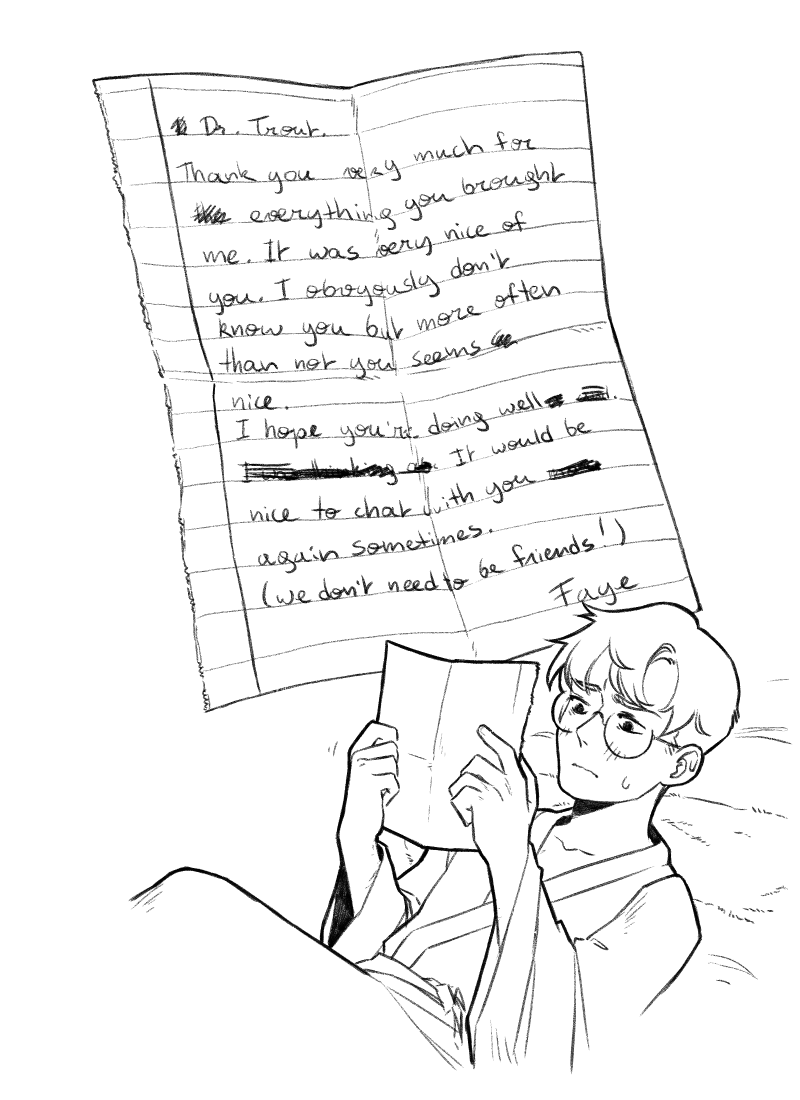 Dr. Trout.
Thank you very much for
everything you brought
me. It was very nice of
you. I obvyously don't
know you but more often
than not you seems
nice.
I hope you're doing well .
It would be
nice to chat with you
again sometimes.
(we don't need to be friends!)
Faye